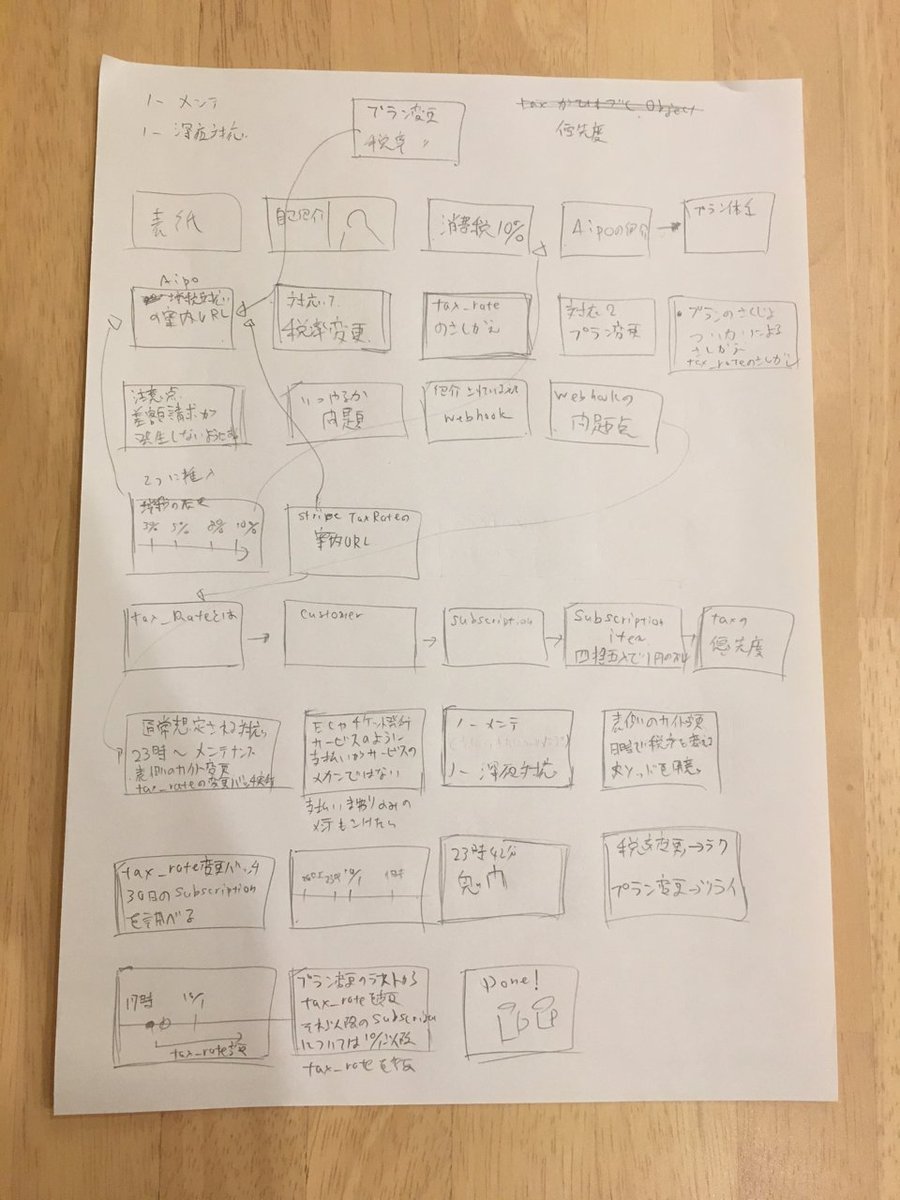 ノーメンテ
ノー深夜対応
プラン変更
税率 〃
tax がひもづく Object
優先度
表紙
自己紹介
消費税10%
Aipoの紹介
プラン体系
Aipo
の案内URL
対応1
税率変更
tax_rate
のさしかえ
対応2
プラン変更
・プランのさくじょ
ついかによる
さしかえ
tax_rateのさしかえ
注意点
差額請求が
発生しないように
いつやるか
問題
紹介されているのは
webhook
webhookの
問題点
3% 5% 8% 10%
stripe TaxRateの
案内URL
tax_Rateとは
Customer
subscription
Subscription
item
四捨五入で1円の
taxの
優先度
通常想定される対応
23時〜メンテナンス
表側のサイト変更
tax_rateの変更バッチ
ECやチケット発行
サービスのように
支払いがサービスの
メインではない
支払いまわりのみの
ノーメンテ
ノー深夜対応
表側のサイト変更
日時で税率を変える
メソッドを用意。
tax_rate変更バッチ
30日のsubscription
を調べる
23時42分
鬼門
税率変更→ラク
プラン変更→ツライ
17時 10/1
tax_rate変更
プラン変更のラストから
tax_rateを変更
それ以降のsubscription
については10/1以降
tax_rateを変更
Done!